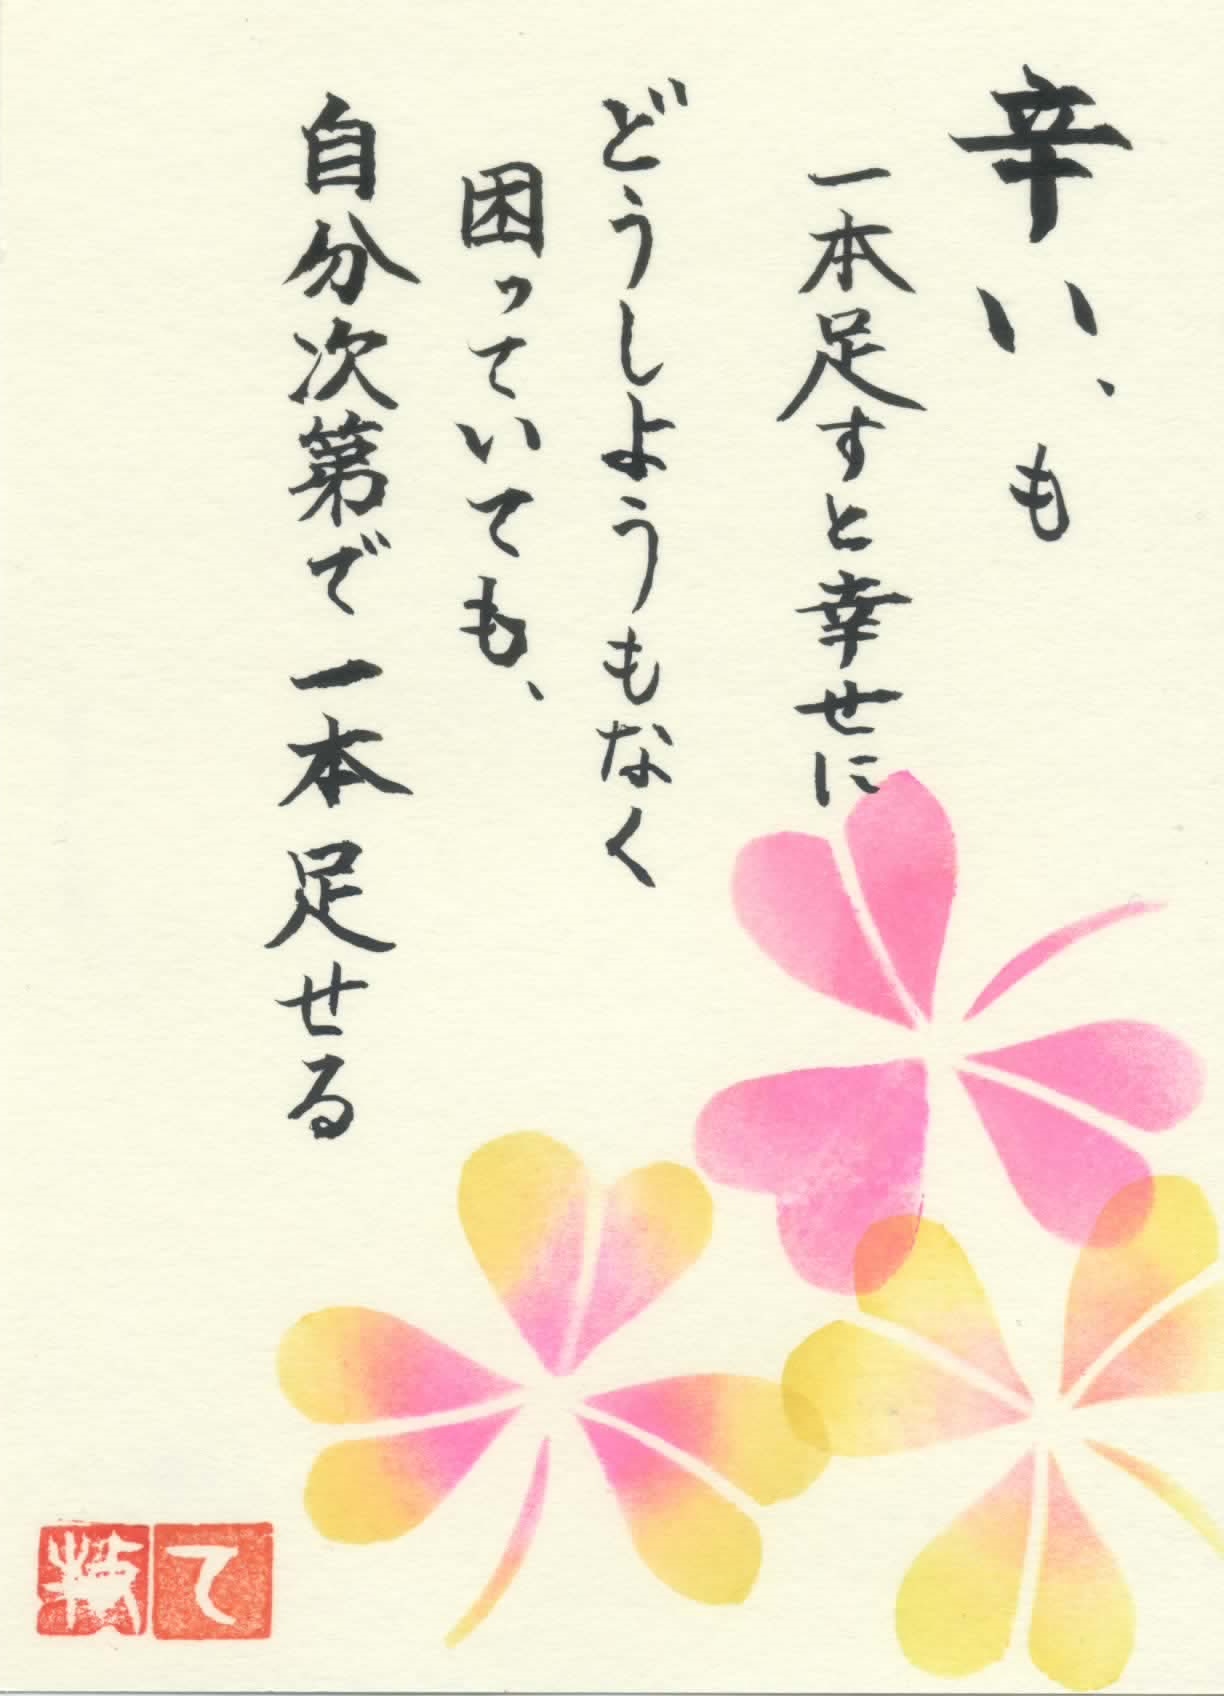 辛い、も
一本足すと幸せに
どうしようもなく
困っていても、
自分次第で一本足せる
て